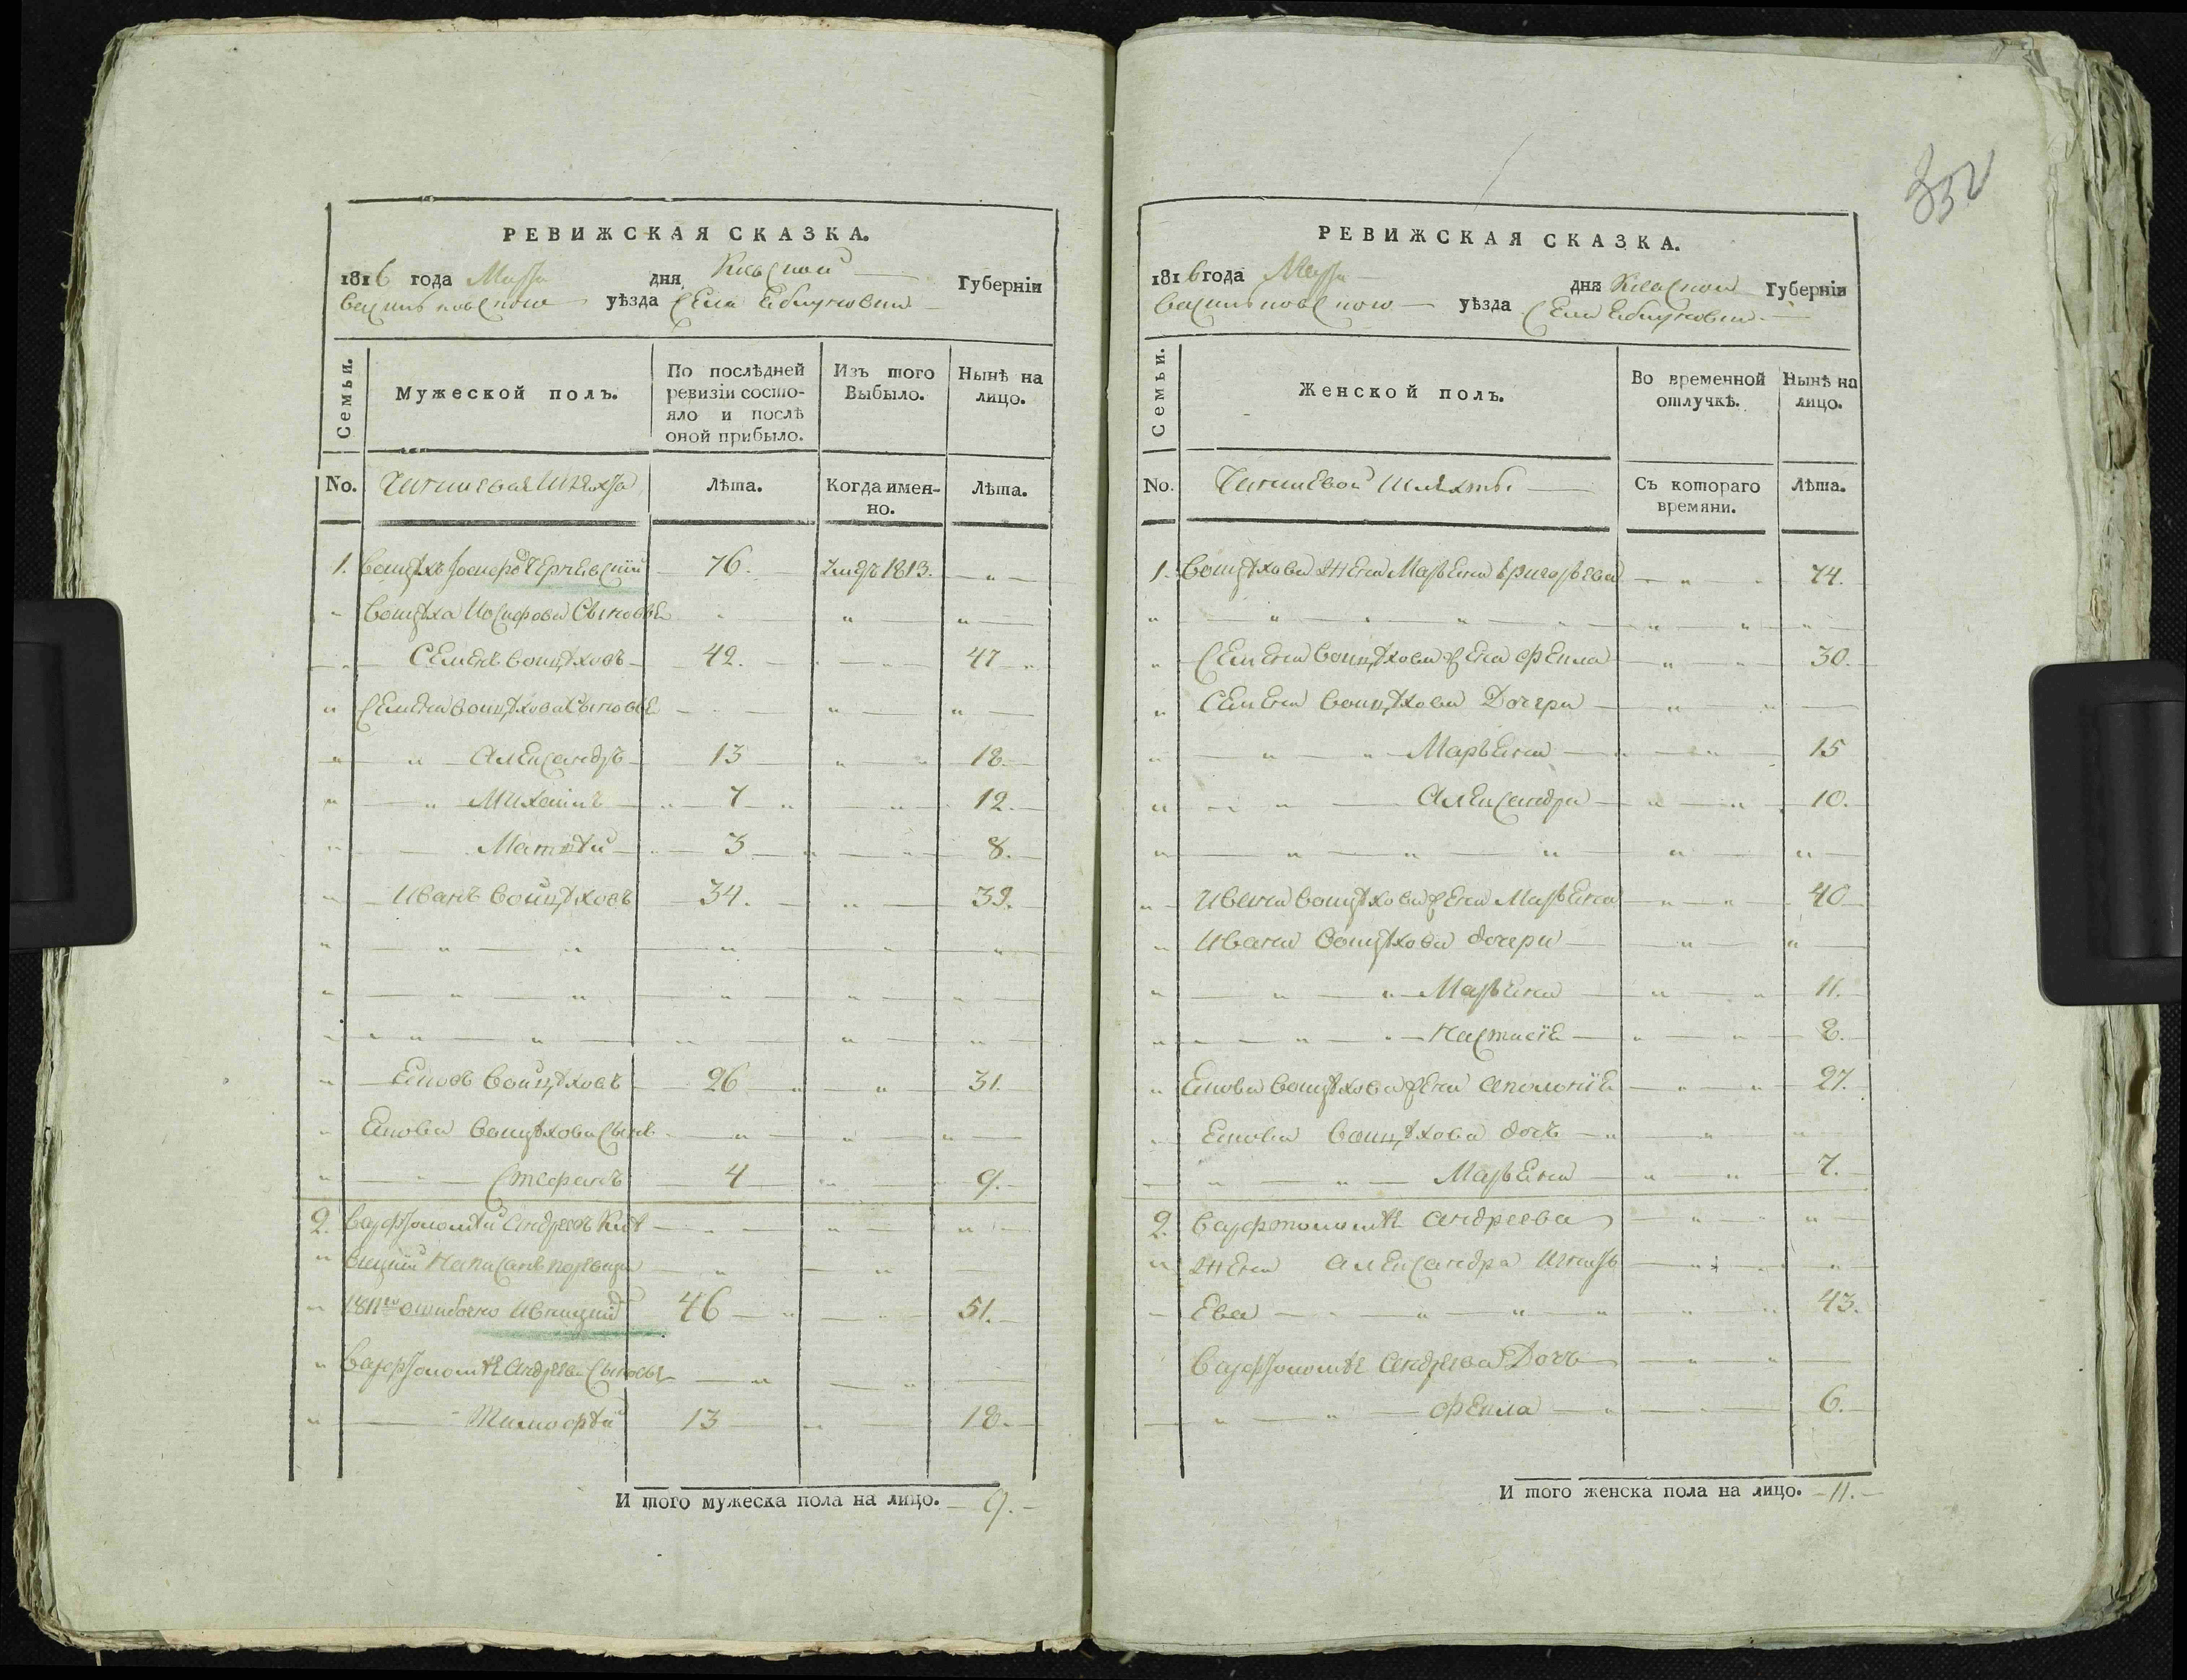 332
РЕВИЖСКАЯ СКАЗКА.
1816 года Марта дня Кіевской Губерніи
Васильковского уѣзда Села Еблуновки
Семьи.
Мужеской полъ.
По послѣдней
ревизіи состо-
яло и послѣ
оной прибыло.
Изъ того
Выбыло.
Нынѣ на
лицо.
No. Чиншевая Шляхта Лѣта. Когда имен-
но. Лѣта.
1. Войцѣхъ 76. 1813. "
Войцѣха Иосифова Сыновье
Семенъ Войцѣховъ 42. 47
Семена Войцѣхова Сыновье
Александръ 13 18.
Михаилъ 7 12.
Матвѣй 3 8.
Иванъ Войцѣховъ 34. 39.
Ековъ Войцѣховъ 26 31.
Екова Войцѣхова Сынъ
Стефанъ 4 9.
2. Варфтоломѣй Андреевъ
Написанъ
1811го ошибочно 46 51.
Варфтоломѣя Андреева Сыновья
Тимофѣй 13 18.
И того мужеска пола на лицо. 9.
РЕВИЖСКАЯ СКАЗКА.
1816 года Марта дня Кіевской Губерніи
Васильковского уѣзда Села Еблуновки
Семьи.
Женской полъ.
Во временной
отлучкѣ.
Нынѣ на
лицо.
No. Чиншевой Шляхты Съ котораго
времяни. Лѣта.
1. Войцѣхова Жена Марьена Григорьева 74.
Семена Войцѣхова жена Фекла 30.
Семена Войцѣхова Дочери
Марьена 15
Александра 10.
Ивана Войцѣхова жена Марьена 40
Ивана Войцѣхова дочери
Марьена 11.
Настасія 8.
Екова Войцѣхова жена Аполонія 27.
Екова Войцѣхова дочь
Марьена 7.
2. Варфтоломѣя Андреева
Жена Александра
43.
Варфтоломѣя Андреева Дочь
Фекла 6.
И того женска пола на лицо. 11.